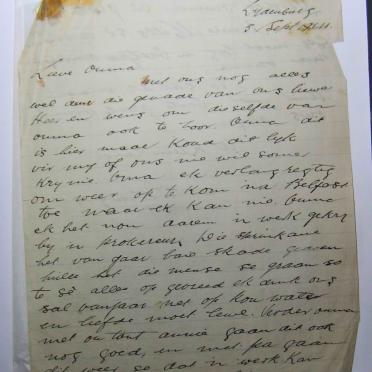 Lydenburg
5 Sept 1911
Lieve Ouma
met ons nog alles
wel deur die genade van ons liewe
Heer en wens om dieselfde van
ouma ook te hoor. Ouma dit
is hier maar koud dit lyk
vir my of ons nie wil somer
kry nie. Ouma ek verlang regtig
om weer op te kom na Belfast
toe maar ek kan nie. Ouma
ek het nou daarem 'n werk gekry
by 'n prokereur. Die sprinkane
het van jaar baie skade gegeven
hulle het die mense se graan so
te sê alles op ek denk ons
sal vanjaar net op kou water
en liefde moet leve. Verder ouma
met ou tant Annie gaan dit ook
nog goed, en met pa gaan
dit weer so dat 'n werk kan